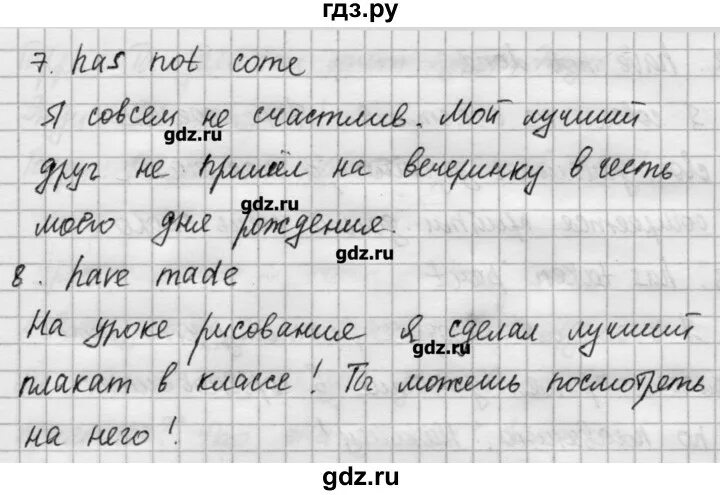 гдз.ру
7. has not come
Я совсем не счастлив. Мой лучший
gdz.ru
друг не пришёл на вечеринку в честь
gdz.ru
моего дня рождения.
gdz.ru
8. have made
На уроке рисования я сделал лучший
gdz.ru
плакат в классе! Ты можешь посмотреть
на него!
gdz.ru